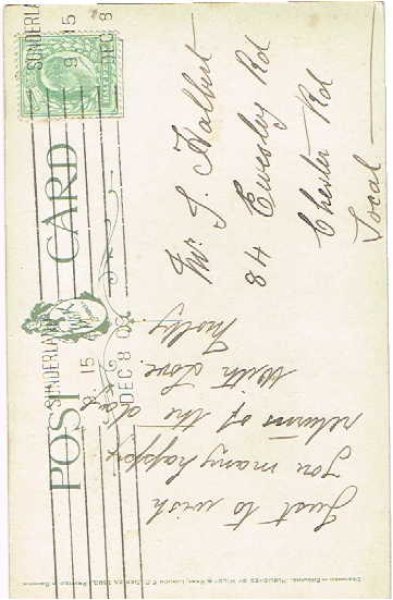 POST CARD
SUNDERLAND
9 15
DEC 8
SUNDERLAND
15
DEC 8
Just to wish
you many happy
returns of the day.
With Love.
Molly
Mr. J. Halbert
84 Ewesley Rd
Chester Rd
Local